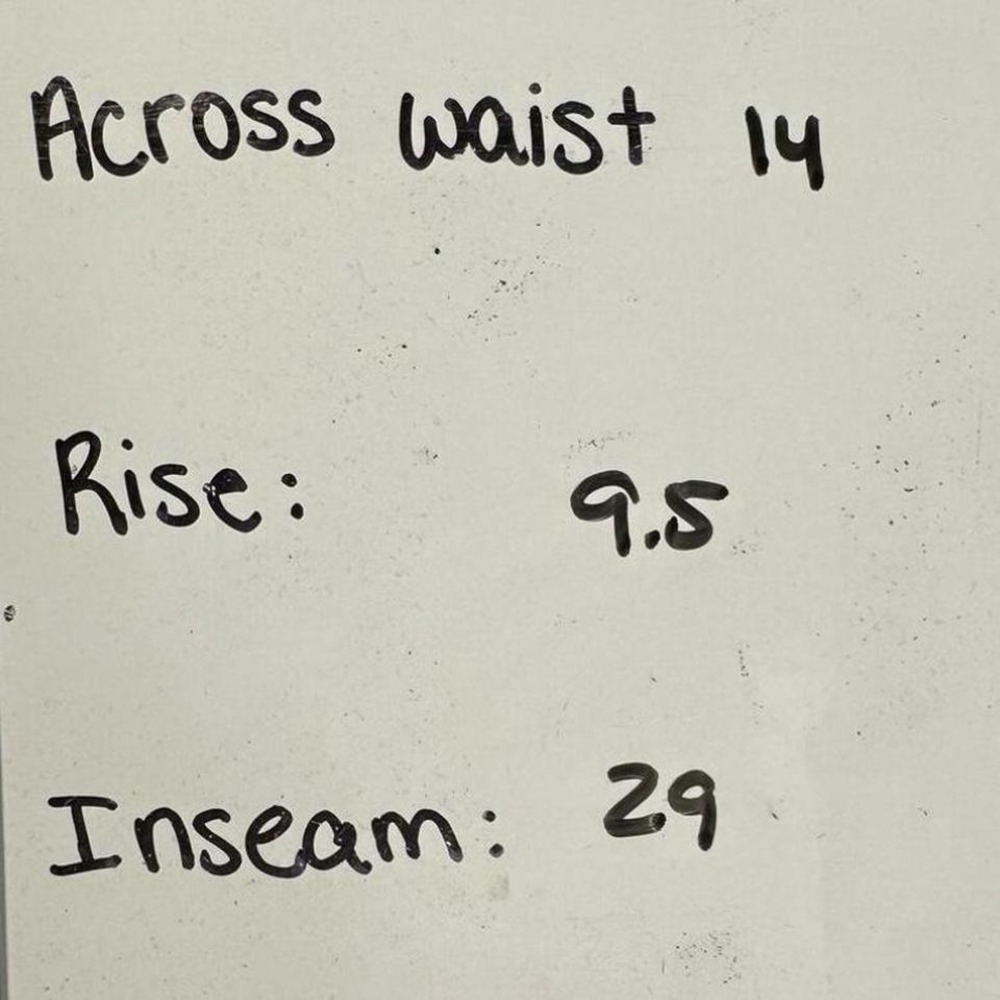 Across waist 14
Rise: 9.5
Inseam: 29